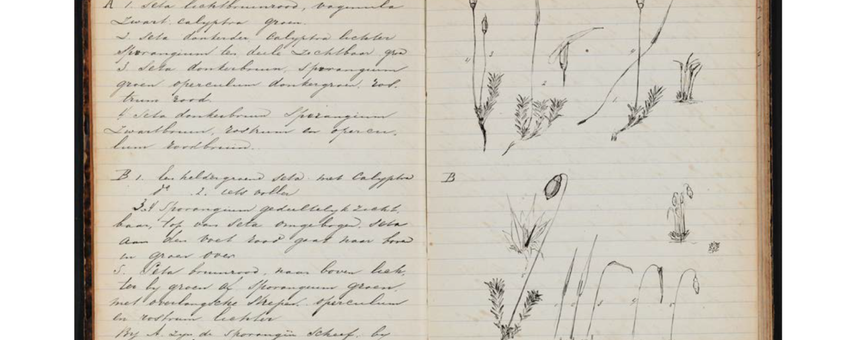 A 1. Seta lichtbruinrood, vaginula
zwart calyptra groen.
2. Seta donkerder Calyptra lichter
Sporangium ten deele zichtbaar, gro
3. Seta donkerbruin, Sporangium
groen operculum donkergroen, ros-
trum rood.
4 Seta donkerbruin Sporangium
zwartbruin, rostrum en opercu-
lum roodbruin.
B 1. lichtgroene seta met Calyptra
do 2. iets voller
3.4 Sporangium gedeeltelijk zicht-
baar, top van Seta omgebogen, seta
aan den voet rood gaat naar boven
in groen over
5. Seta bruinrood, naar boven lich-
ter bij groen af Sporangium groen,
met overlangsche strepen, operculum
en rostrum lichter
Bij A. zijn de Sporangiën scheef, bij
B